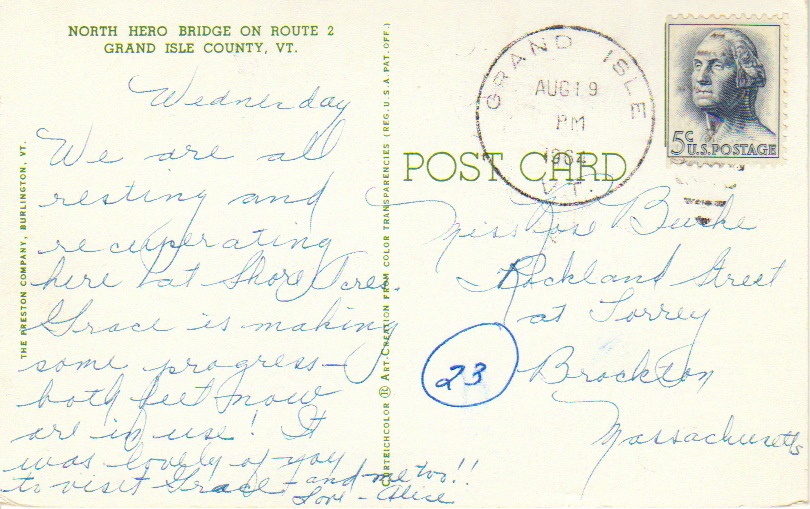 NORTH HERO BRIDGE ON ROUTE 2
GRAND ISLE COUNTY, VT.
Wednesday
We are all
resting and
recuperating
here at Shore Acres.
Grace is making
some progress—
both feet now
are in use! It
was lovely of you
to visit Grace - and me too!!
Love - Alice
THE PRESTON COMPANY, BURLINGTON, VT.
CURTEICHCOLOR ® ART-CREATION FROM COLOR TRANSPARENCIES (REG. U.S.A. PAT. OFF.)
POST CARD
GRAND ISLE
AUG 19
PM
1964
VT.
5¢
U.S. POSTAGE
Miss Rose Burke
Rockland Street
at Torrey
Brockton
Massachusetts
23